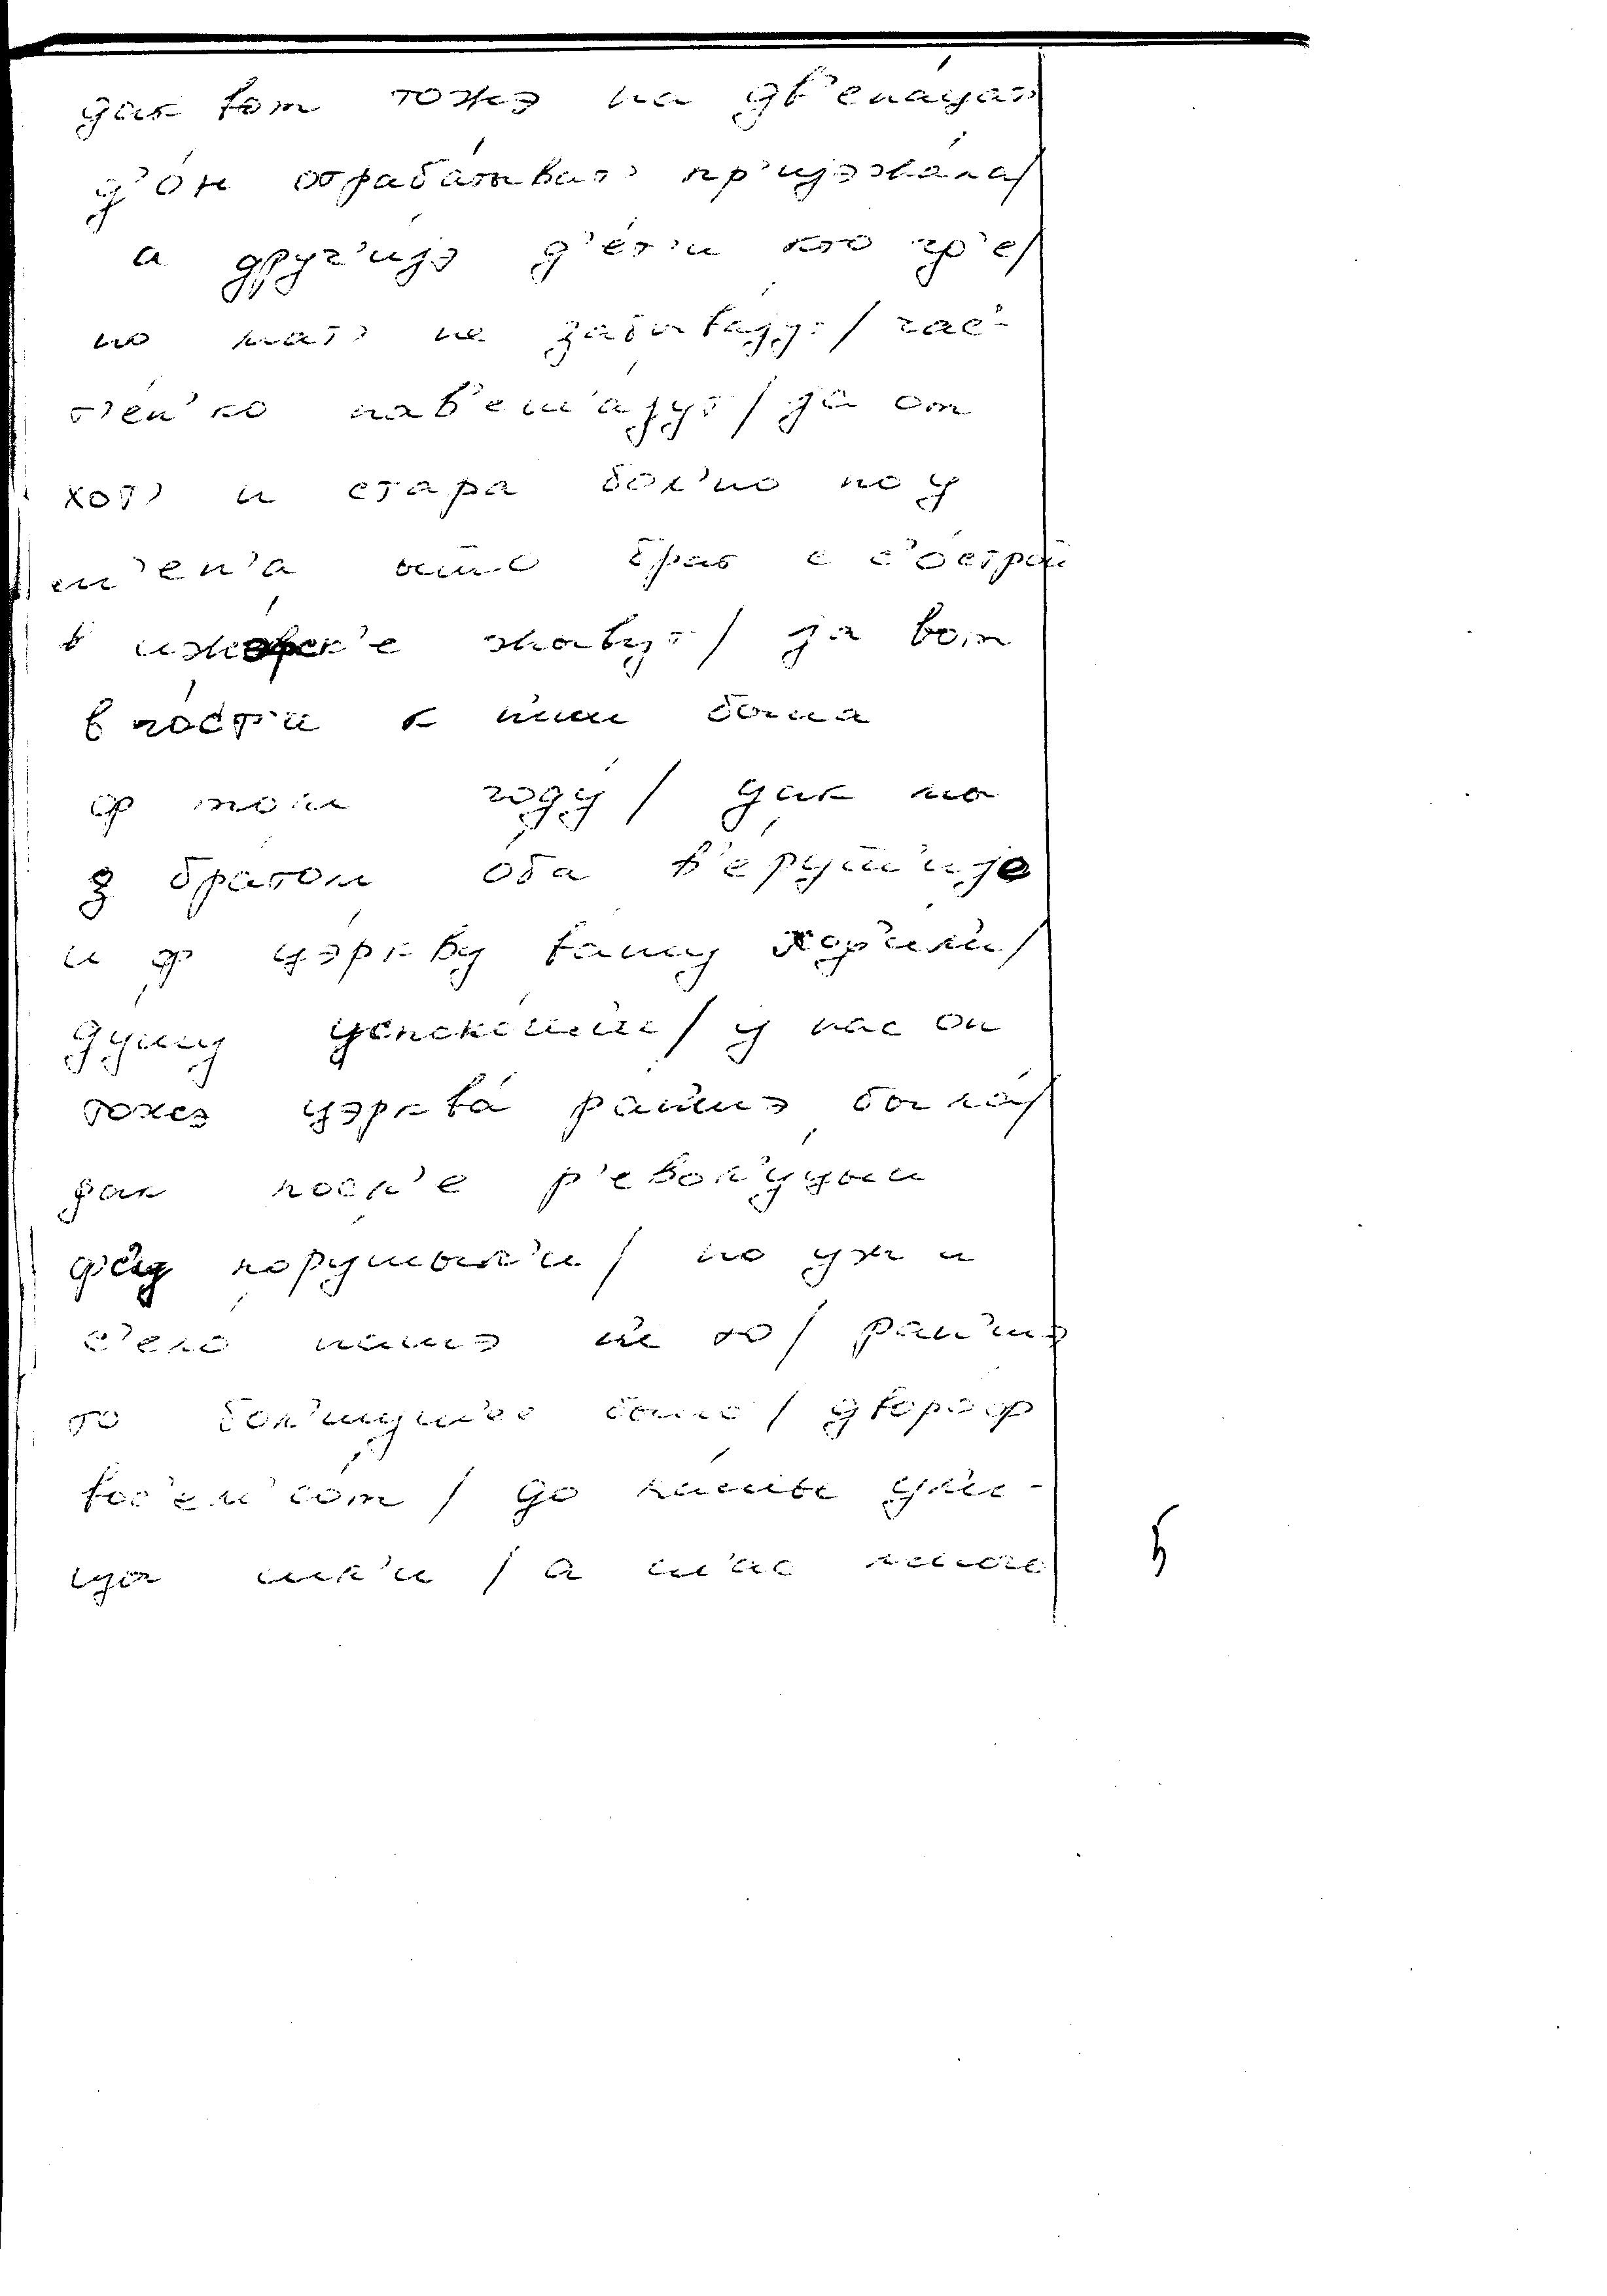 дак вот тожэ на дв'ена́цат'
д'о́н отраба́тыват' пр'ијэжа́ла/
а друг'ијэ д'е́т'и кто гд'е/
но мат' не забыва́јут/ час'-
т'е́н'ко нав'ещ'а́јут/ ја от
хот' и стара бол'но но у
м'ен'а ишшо брат с с'острой
в иже́вск'е жывут/ ја вот
в го́ст'и к ним была
ф том году́/ дак мы
з братом о́ба в'е́рушч'ије
и ф цэ́ркву вашу ход'и́л'и/
ду́шу успоко́ил'и/ у нас он
тожэ цэрква́ ран'шэ была́/
дак посл'е р'евол'у́цыи
фс'у порушыл'и/ но уж и
с'ело́ нашэ н'е то/ ран'шэ
то бол'шушч'ее было/ дворо́ф
вос'ем'со́т/ до
шл'и/ а ш'ас много